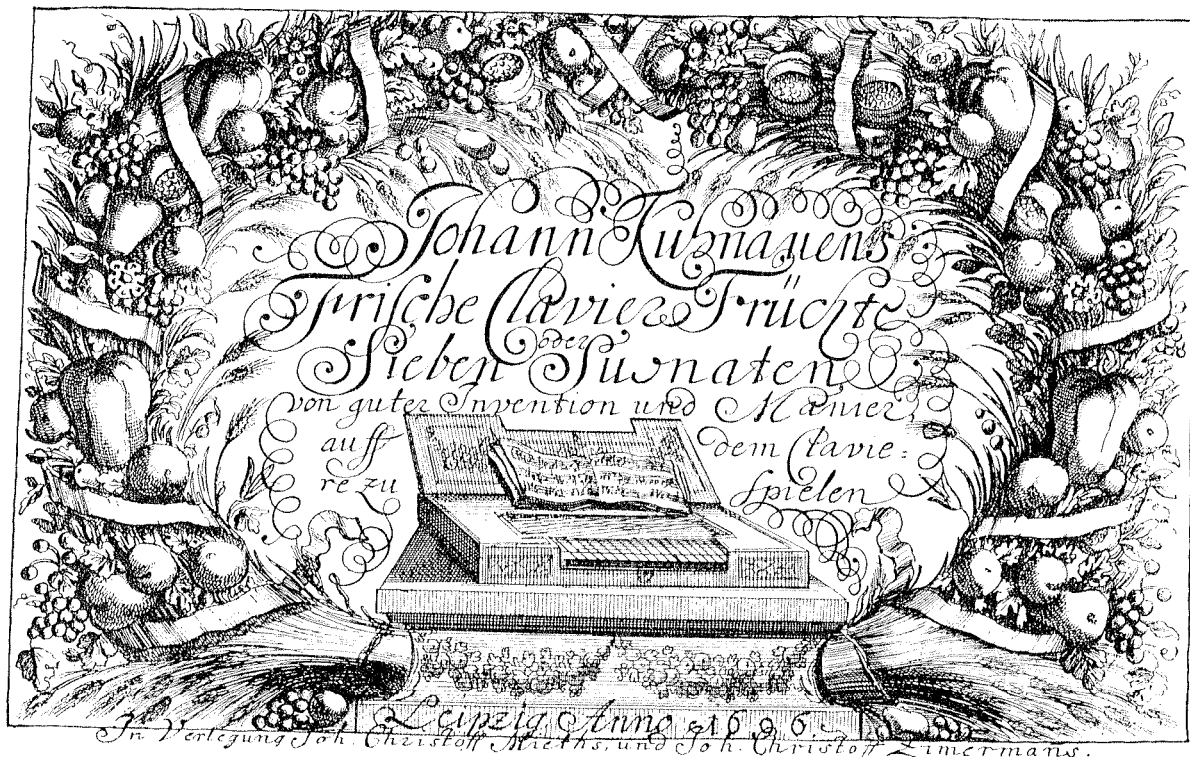 Johann Kuhnauens
Frische Clavier Früchte
oder
Sieben Suonaten,
von guter Invention und Manier
auff dem Clavie=
re zu spielen
Leipzig Anno 1696.
In Verlegung Joh. Christoff Mieths, und Joh. Christoff Zimermans.